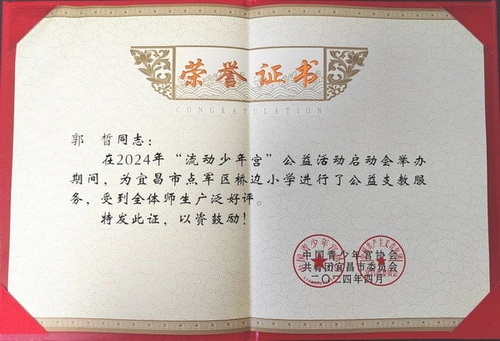 荣誉证书
CONGRATULATION
郭 哲同志:
在2024年“流动少年宫”公益活动启动会举办
期间,为宜昌市点军区桥边小学进行了公益支教服
务,受到全体师生广泛好评。
特发此证,以资鼓励!
中国青少年宫协会
共青团宜昌市委员会
二〇二四年四月